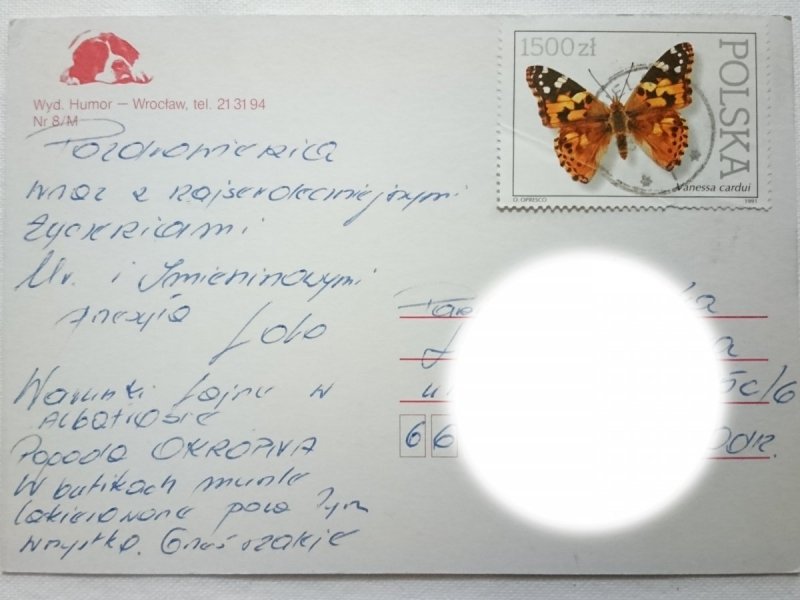 Wyd. Humor – Wrocław, tel. 21 31 94
Nr 8/M
1500 zł
POLSKA
Vanessa cardui
D. OPRESCO
1991
Pozdrowienia
wraz z najserdeczniejszymi
życzeniami
Ur. i Imieninowymi
Lolo
Warunki fajne w
ALBATROSIE
Pogoda OKROPNA
W butikach
lakierowane poza tym
wszystko.
6 6
5c/6
Odrz.